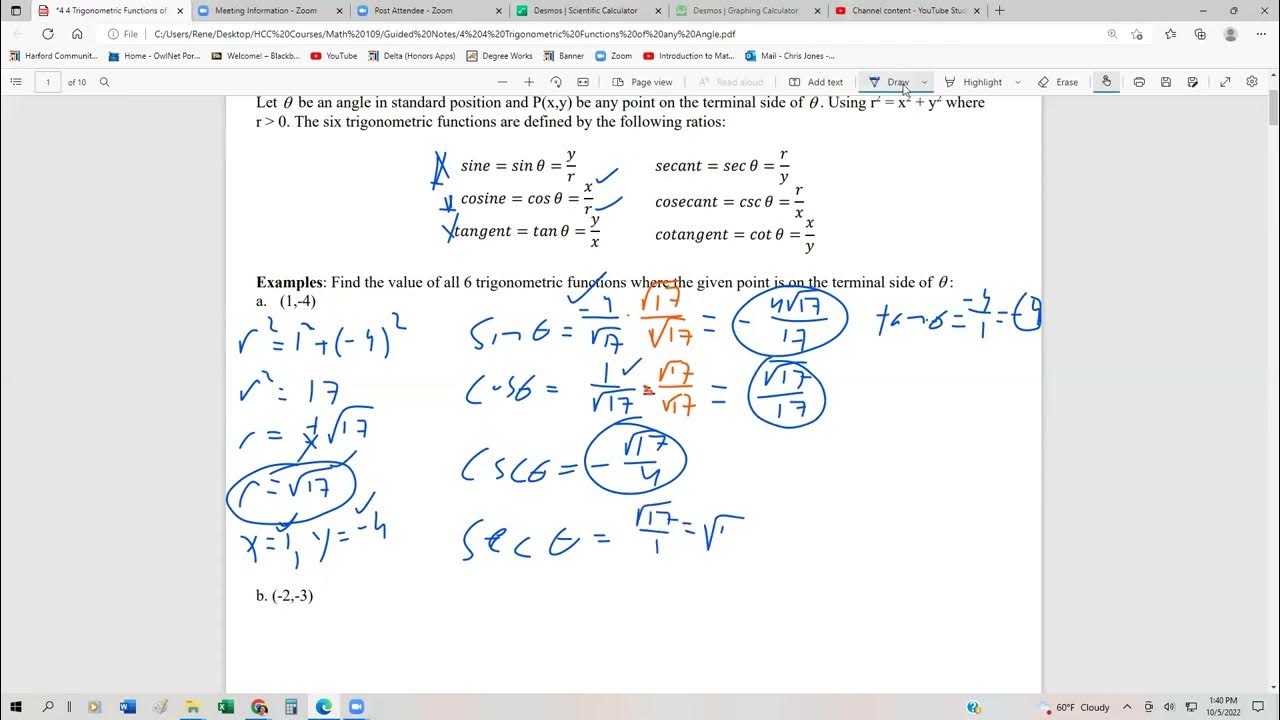 *4 4 Trigonometric Functions of
Meeting Information - Zoom
Post Attendee - Zoom
Desmos | Scientific Calculator
Desmos | Graphing Calculator
Channel content - YouTube Stud
File
C:/Users/Rene/Desktop/HCC%20Courses/Math%20109/Guided%20Notes/4%204%20Trigonometric%20Functions%20of%20any%20Angle.pdf
Harford Communit...
Home - OwlNet Por...
Welcome! – Blackb...
YouTube
Delta (Honors Apps)
Degree Works
Banner
Zoom
Introduction to Mat...
Mail - Chris Jones -...
1 of 10
Page view
Read aloud
Add text
Draw
Highlight
Erase
Let θ be an angle in standard position and P(x,y) be any point on the terminal side of θ. Using r² = x² + y² where
r > 0. The six trigonometric functions are defined by the following ratios:
sine = sin θ = y/r secant = sec θ = r/y
cosine = cos θ = x/r cosecant = csc θ = r/x
tangent = tan θ = y/x cotangent = cot θ = x/y
Examples: Find the value of all 6 trigonometric functions where the given point is on the terminal side of θ:
a. (1,-4)
r² = 1² + (-4)²
r² = 17
r = ±√17
r = √17
x = 1, y = -4
sin θ = -4/√17 · √17/√17 = - 4√17/17
cos θ = 1/√17 · √17/√17 = √17/17
csc θ = - √17/4
sec θ = √17/1 = √1
tan θ = -4/1 = -4
b. (-2,-3)
60°F Cloudy
1:40 PM
10/5/2022